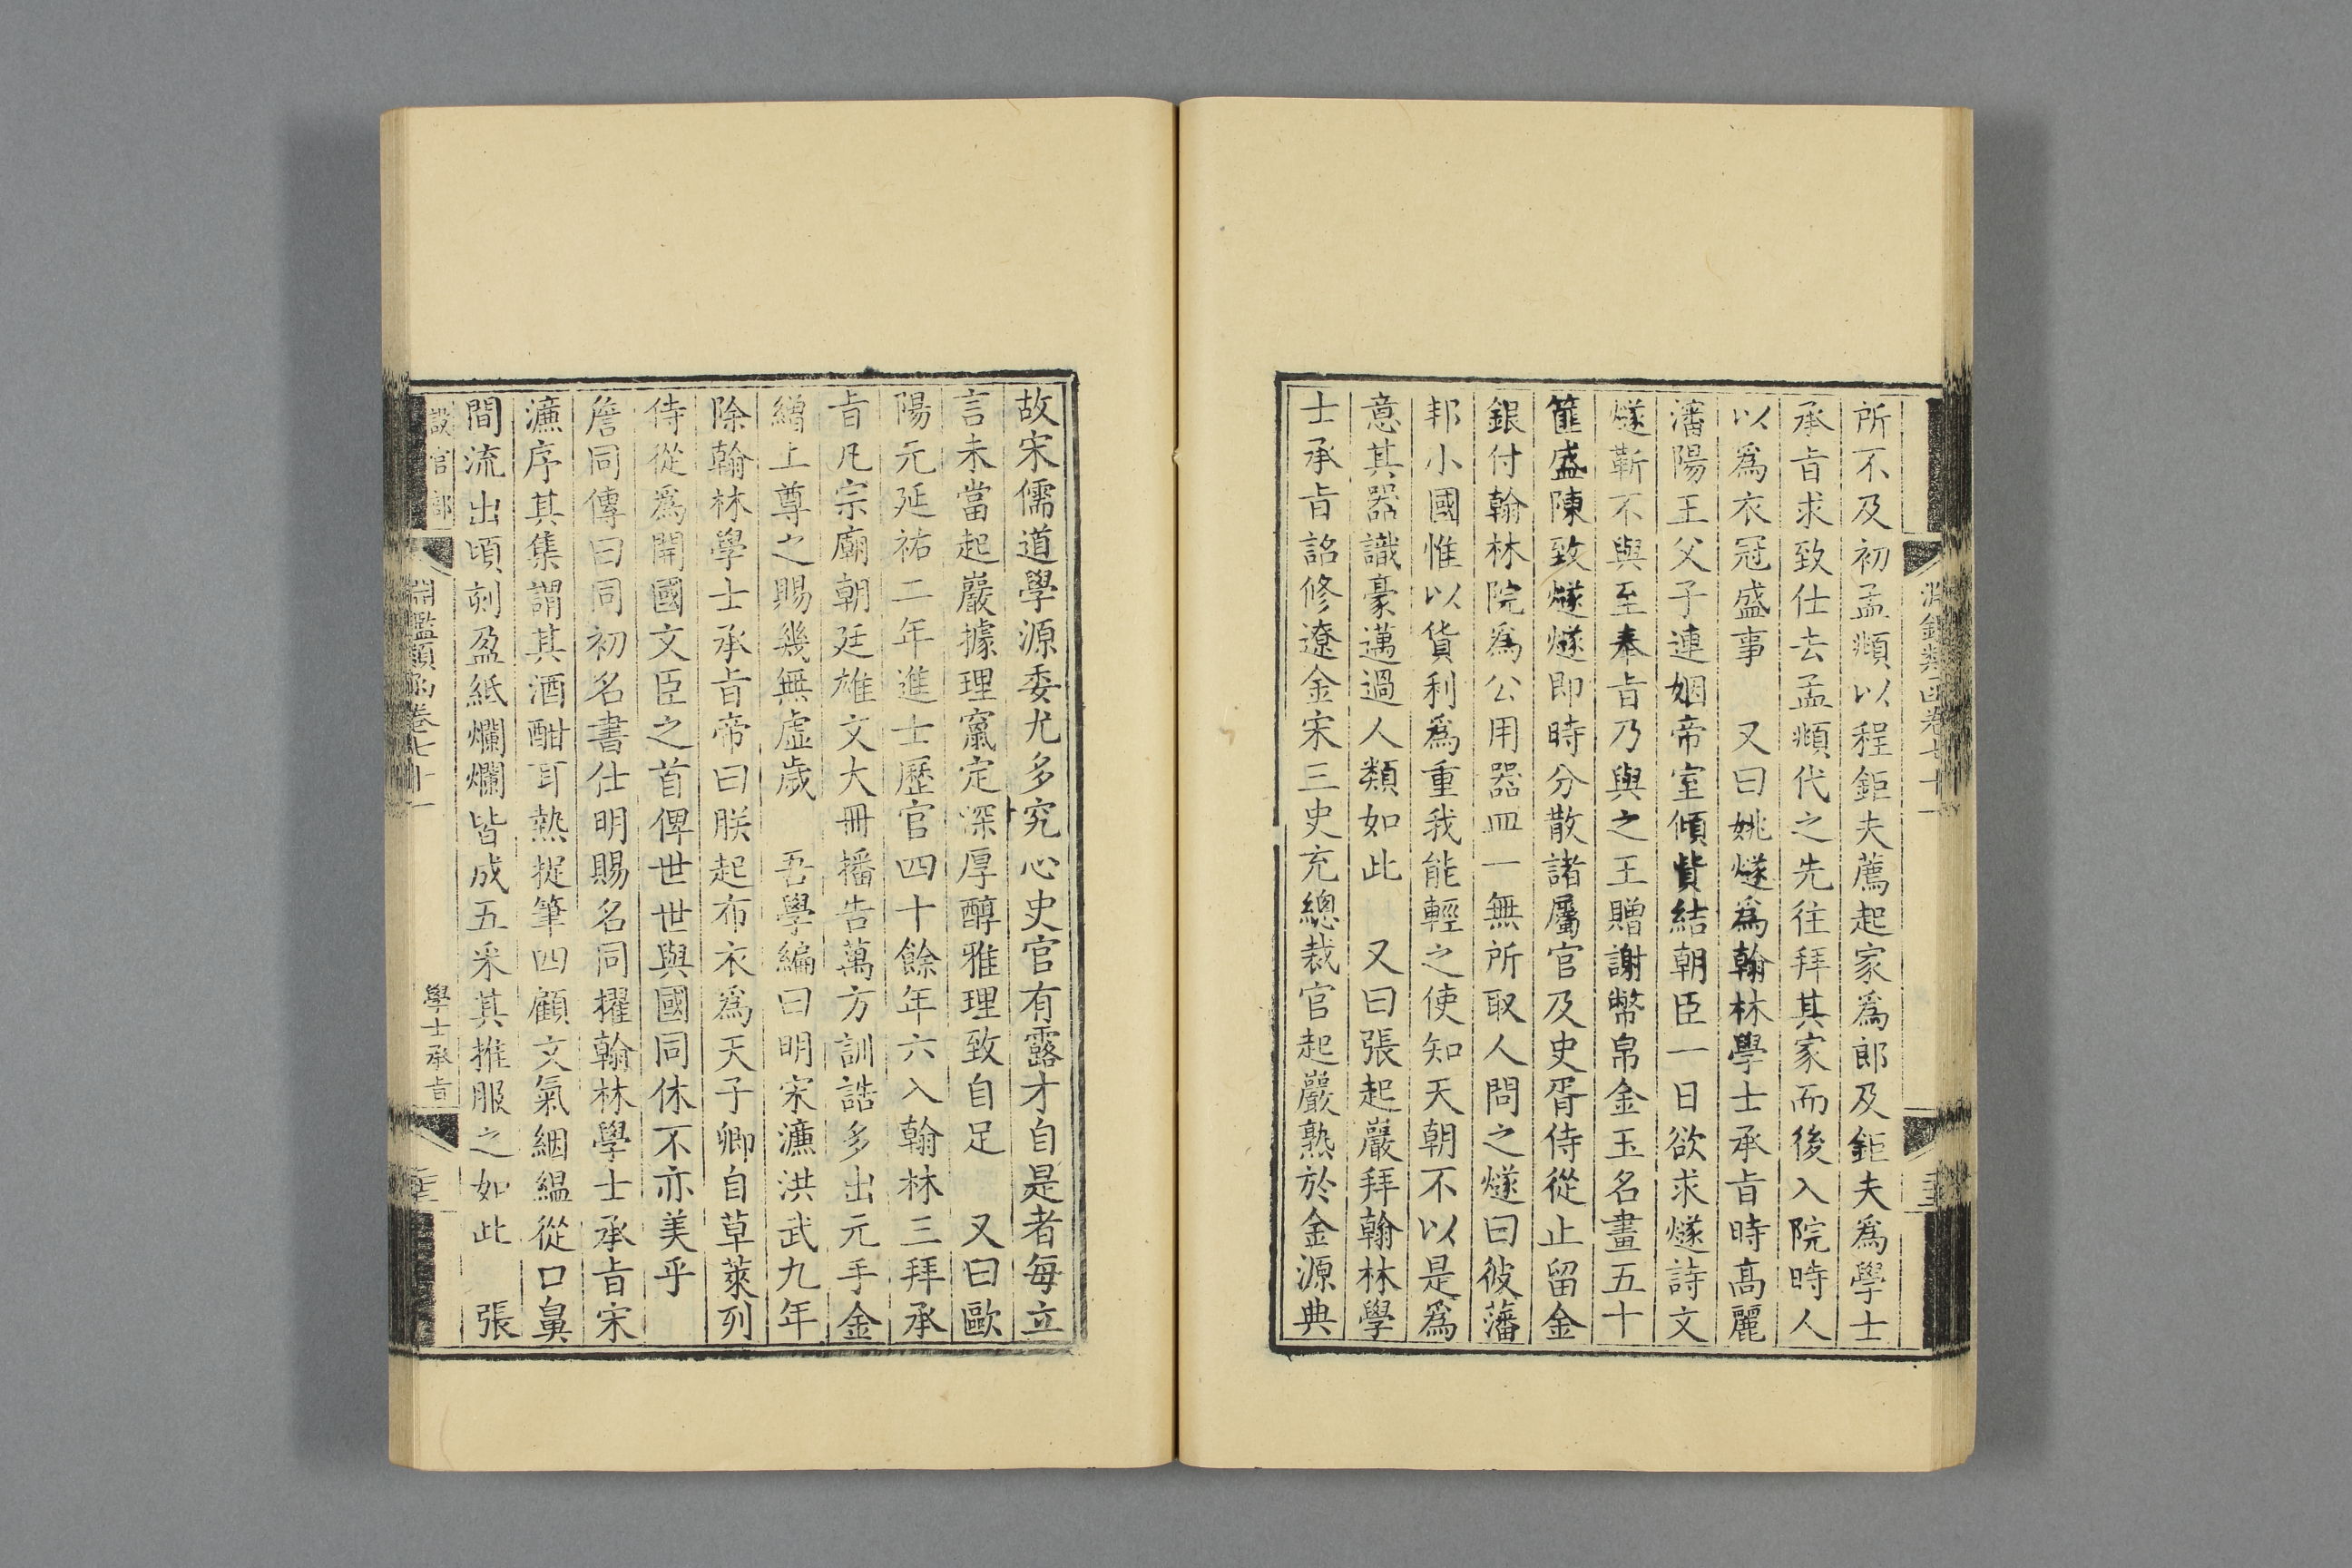 所不及初孟頫以程鉅夫薦起家爲郎及鉅夫爲學士
承旨求致仕去孟頫代之先往拜其家而後入院時人
以爲衣冠盛事　又曰姚燧爲翰林學士承旨時高麗
瀋陽王父子連姻帝室傾貲結朝臣一日欲求燧詩文
燧靳不與至奉旨乃與之王贈謝幣帛金玉名畫五十
篚盛陳致燧燧即時分散諸屬官及史胥侍從止留金
銀付翰林院爲公用器皿一無所取人問之燧曰彼藩
邦小國惟以貨利爲重我能輕之使知天朝不以是爲
意其器識豪邁過人類如此　又曰張起巖拜翰林學
士承旨詔修遼金宋三史充總裁官起巖熟於金源典
故宋儒道學源委尤多究心史官有露才自是者每立
言未當起巖據理竄定深厚醇雅理致自足　又曰歐
陽元延祐二年進士歷官四十餘年六入翰林三拜承
旨凡宗廟朝廷雄文大冊播告萬方訓誥多出元手金
繒上尊之賜幾無虛歲　吾學編曰明宋濂洪武九年
除翰林學士承旨帝曰朕起布衣爲天子卿自草萊列
侍從爲開國文臣之首俾世世與國同休不亦美乎
詹同傳曰同初名書仕明賜名同擢翰林學士承旨宋
濂序其集謂其酒酣耳熱捉筆四顧文氣絪縕從口鼻
間流出頃刻盈紙爛爛皆成五采其推服之如此　張
設官部
淵鑑類函卷七十一
學士承旨